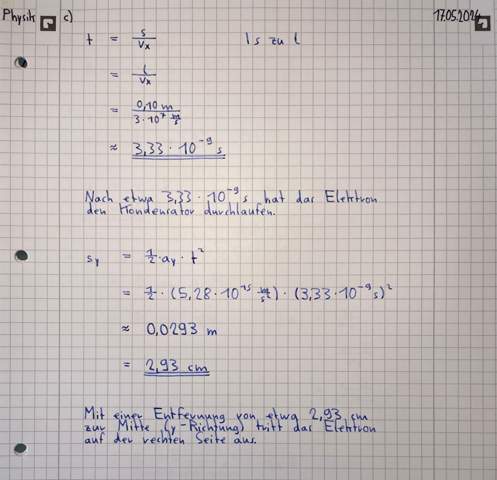 Physik c) 17.05.2024
t = s/vₓ | s zu l
= l/vₓ
= 0,10 m / 3·10⁷ m/s
≈ 3,33 · 10⁻⁹ s
Nach etwa 3,33 · 10⁻⁹ s hat das Elektron
den Kondensator durchlaufen.
s_y = 1/2 · a_y · t²
= 1/2 · (5,28 · 10¹⁵ m/s²) · (3,33 · 10⁻⁹ s)²
≈ 0,0293 m
= 2,93 cm
Mit einer Entfernung von etwa 2,93 cm
zur Mitte (y-Richtung) tritt das Elektron
auf der rechten Seite aus.